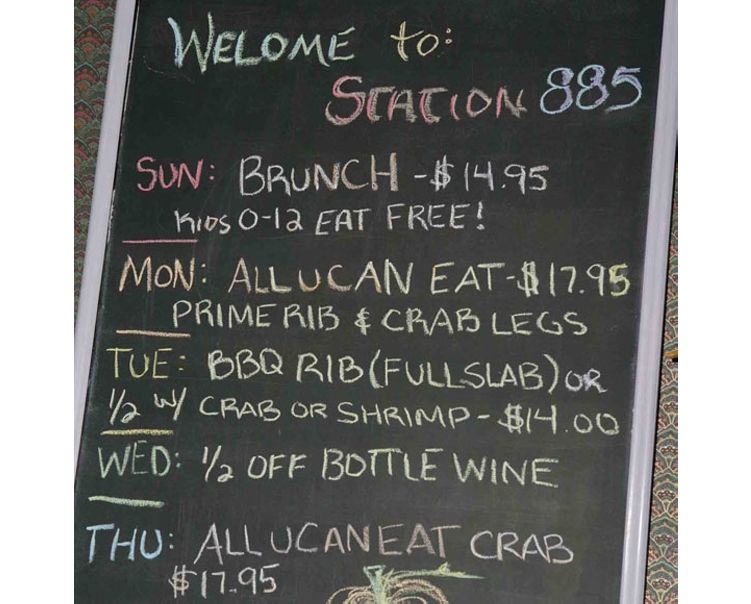 WELOME to:
STATION 885
SUN: BRUNCH - $14.95
KIDS 0-12 EAT FREE!
MON: ALL U CAN EAT - $17.95
PRIME RIB & CRAB LEGS
TUE: BBQ RIB (FULL SLAB) OR
1/2 W/ CRAB OR SHRIMP - $14.00
WED: 1/2 OFF BOTTLE WINE
THU: ALL U CAN EAT CRAB
$17.95